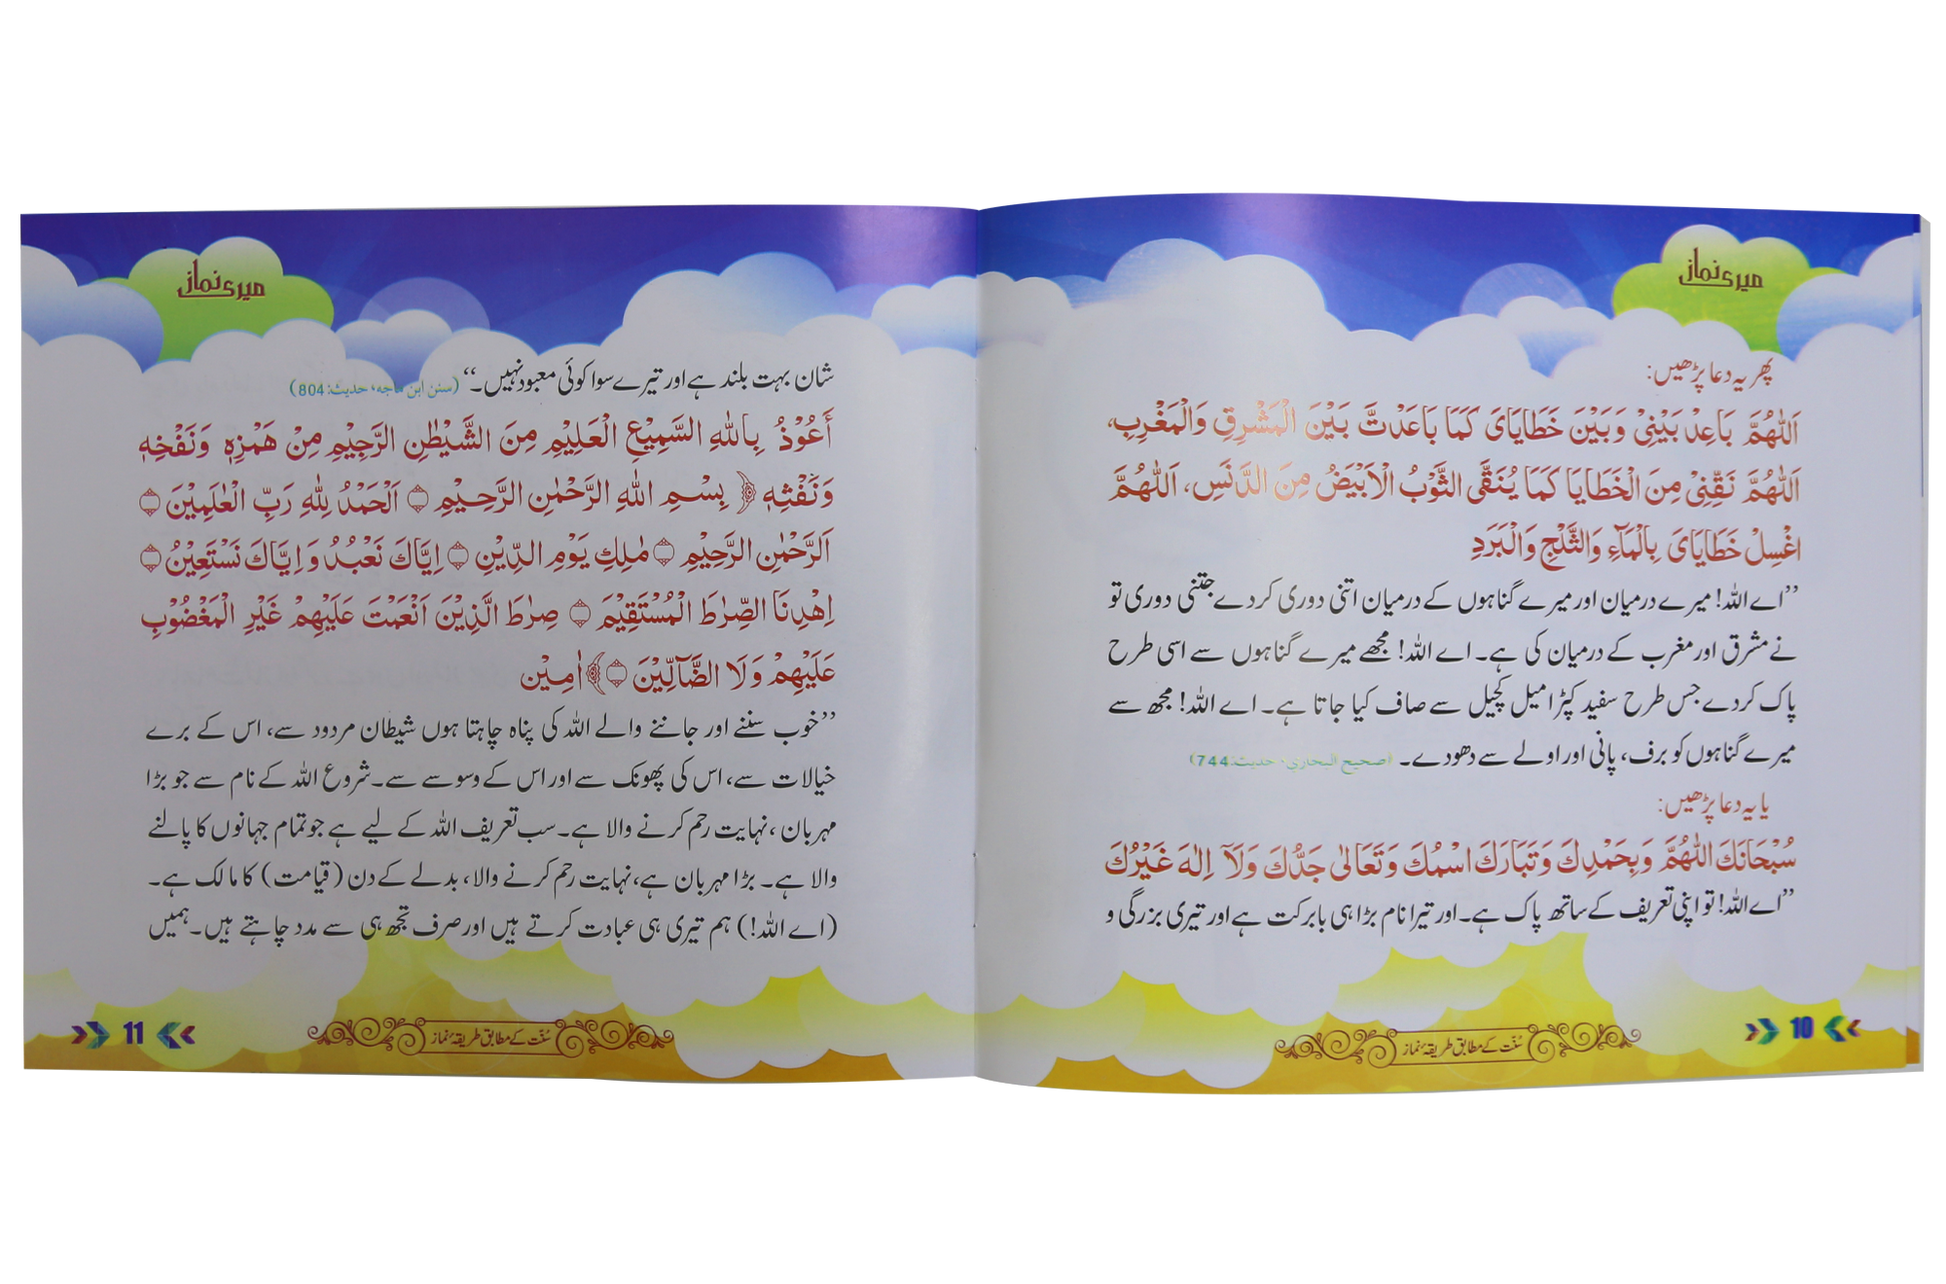 میری نماز
پھر یہ دعا پڑھیں:
اَللّٰهُمَّ بَاعِدْ بَيْنِيْ وَبَيْنَ خَطَايَایَ كَمَا بَاعَدْتَّ بَيْنَ الْمَشْرِقِ وَالْمَغْرِبِ،
اَللّٰهُمَّ نَقِّنِيْ مِنَ الْخَطَايَا كَمَا يُنَقَّى الثَّوْبُ الْاَبْيَضُ مِنَ الدَّنَسِ، اَللّٰهُمَّ
اغْسِلْ خَطَايَایَ بِالْمَآءِ وَالثَّلْجِ وَالْبَرَدِ
’’اے اللہ! میرے درمیان اور میرے گناہوں کے درمیان اتنی دوری کردے جتنی دوری تو
نے مشرق اور مغرب کے درمیان کی ہے۔ اے اللہ! مجھے میرے گناہوں سے اسی طرح
پاک کردے جس طرح سفید کپڑا میل کچیل سے صاف کیا جاتا ہے۔ اے اللہ! مجھ سے
میرے گناہوں کو برف، پانی اور اولے سے دھودے۔ (صحیح البخاری، حدیث: 744)
یا یہ دعا پڑھیں:
سُبْحَانَكَ اللّٰهُمَّ وَبِحَمْدِكَ وَتَبَارَكَ اسْمُكَ وَتَعَالٰى جَدُّكَ وَلَآ اِلٰهَ غَيْرُكَ
’’اے اللہ! تو اپنی تعریف کے ساتھ پاک ہے۔ اور تیرا نام بڑا ہی بابرکت ہے اور تیری بزرگی و
سُنّت کے مطابق طریقۂ نماز
10
میری نماز
شان بہت بلند ہے اور تیرے سوا کوئی معبود نہیں۔‘‘ (سنن ابن ماجہ، حدیث: 804)
أَعُوْذُ بِاللّٰهِ السَّمِيْعِ الْعَلِيْمِ مِنَ الشَّيْطٰنِ الرَّجِيْمِ مِنْ هَمْزِهٖ وَنَفْخِهٖ
وَنَفْثِهٖ ﴿ بِسْمِ اللّٰهِ الرَّحْمٰنِ الرَّحِيْمِ ۝ اَلْحَمْدُ لِلّٰهِ رَبِّ الْعٰلَمِيْنَ ۝
اَلرَّحْمٰنِ الرَّحِيْمِ ۝ مٰلِكِ يَوْمِ الدِّيْنِ ۝ اِيَّاكَ نَعْبُدُ وَاِيَّاكَ نَسْتَعِيْنُ ۝
اِهْدِنَا الصِّرٰطَ الْمُسْتَقِيْمَ ۝ صِرٰطَ الَّذِيْنَ اَنْعَمْتَ عَلَيْهِمْ غَيْرِ الْمَغْضُوْبِ
عَلَيْهِمْ وَلَا الضَّآلِّيْنَ ۝﴾ اٰمِيْن
’’خوب سننے اور جاننے والے اللہ کی پناہ چاہتا ہوں شیطان مردود سے، اس کے برے
خیالات سے، اس کی پھونک سے اور اس کے وسوسے سے۔ شروع اللہ کے نام سے جو بڑا
مہربان، نہایت رحم کرنے والا ہے۔ سب تعریف اللہ کے لیے ہے جو تمام جہانوں کا پالنے
والا ہے۔ بڑا مہربان ہے، نہایت رحم کرنے والا، بدلے کے دن (قیامت) کا مالک ہے۔
(اے اللہ!) ہم تیری ہی عبادت کرتے ہیں اور صرف تجھ ہی سے مدد چاہتے ہیں۔ ہمیں
سُنّت کے مطابق طریقۂ نماز
11